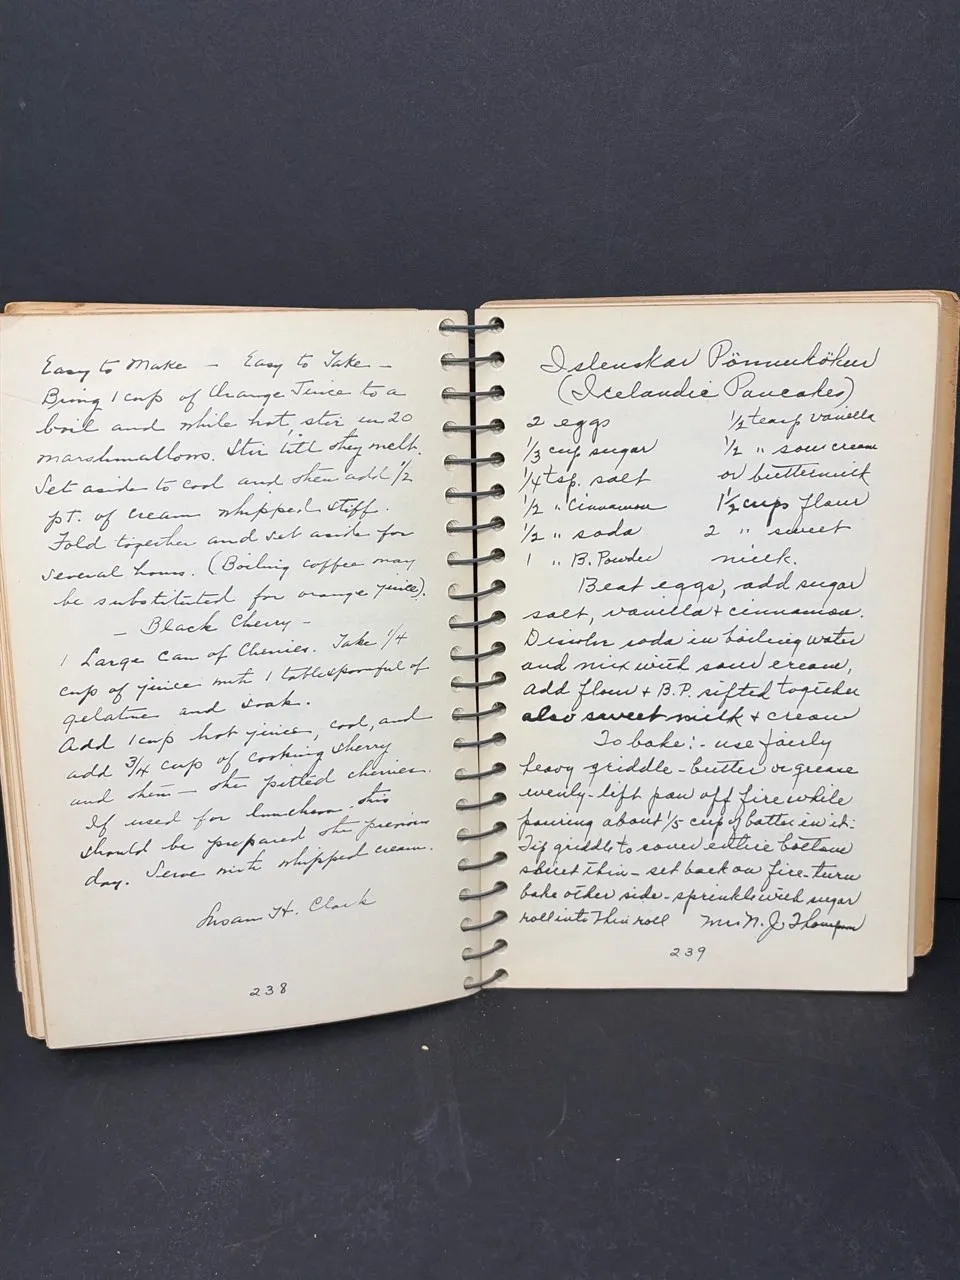 Easy to Make — Easy to Take —
Bring 1 cup of Orange Juice to a
boil and while hot, stir in 20
marshmallows. Stir till they melt.
Set aside to cool and then add 1/2
pt. of cream whipped stiff.
Fold together and set aside for
several hours. (Boiling coffee may
be substituted for orange juice).
— Black Cherry —
1 Large Can of Cherries. Take 1/4
cup of juice with 1 tablespoonful of
gelatine and soak.
Add 1 cup hot juice, cool, and
add 3/4 cup of cooking sherry
and then — the pitted cherries.
If used for luncheon this
should be prepared the previous
day. Serve with whipped cream.
Susan H. Clark
238
Islenskar Pönnukökur
(Icelandic Pancakes)
2 eggs 1/2 teasp vanilla
1/3 cup sugar 1/2 " sour cream
1/4 tsp. salt or buttermilk
1/2 " Cinnamon 1 1/2 cups flour
1/2 " soda 2 " sweet
1 " B. Powder milk.
Beat eggs, add sugar
salt, vanilla + cinnamon.
Dissolve soda in boiling water
and mix with sour cream,
add flour + B.P. sifted together
also sweet milk + cream
To bake:- use fairly
heavy griddle - butter or grease
evenly - lift pan off fire while
pouring about 1/5 cup of batter in it.
Tip griddle to cover entire bottom
sheet thin - set back on fire - turn
bake other side - sprinkle with sugar
roll into thin roll Mrs N. J. Thompson
239